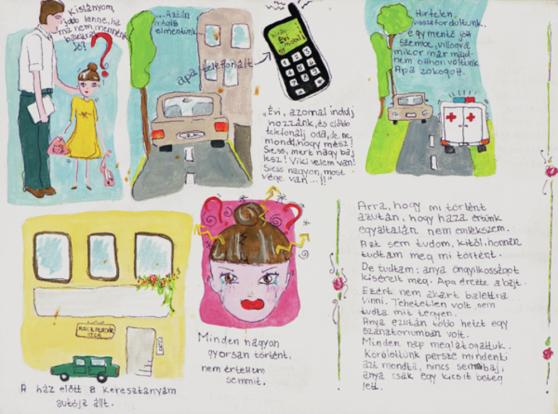 Kislányom,
jobb lenne, ha
ma nem mennénk
balettra
jó?
...Aztán
mégis
elmentünk.
apa telefonált
Évi
„Évi, azonnal indulj
hozzánk, és előbb
telefonálj oda, le ne
mondd, hogy mész!
Siess, mert nagy baj
lesz! Viki velem van!
Siess nagyon, most
vége van...!!"
Hirtelen
visszafordultunk.
egy mentő jött
szembe, villogva
mikor már majd-
nem otthon voltunk.
Apa zokogott.
A ház előtt a keresztanyám
autója állt.
Minden nagyon
gyorsan történt,
nem értettem
semmit.
Arra, hogy mi történt
azután, hogy haza értünk
egyáltalán nem emlékszem.
Azt sem tudom, kitől, honnan
tudtam meg mi történt.
De tudtam: anya öngyilkosságot
kísérelt meg. Apa érezte a bajt.
Ezért nem akart balettra
vinni. Tehetetlen volt, nem
tudta mit tegyen.
Anya ezután több hetet egy
szanatóriumban volt.
Minden nap meglátogattuk.
Körülöttünk persze mindenki
azt mondta, nincs semmi baj,
anya csak egy kicsit beteg
lett.